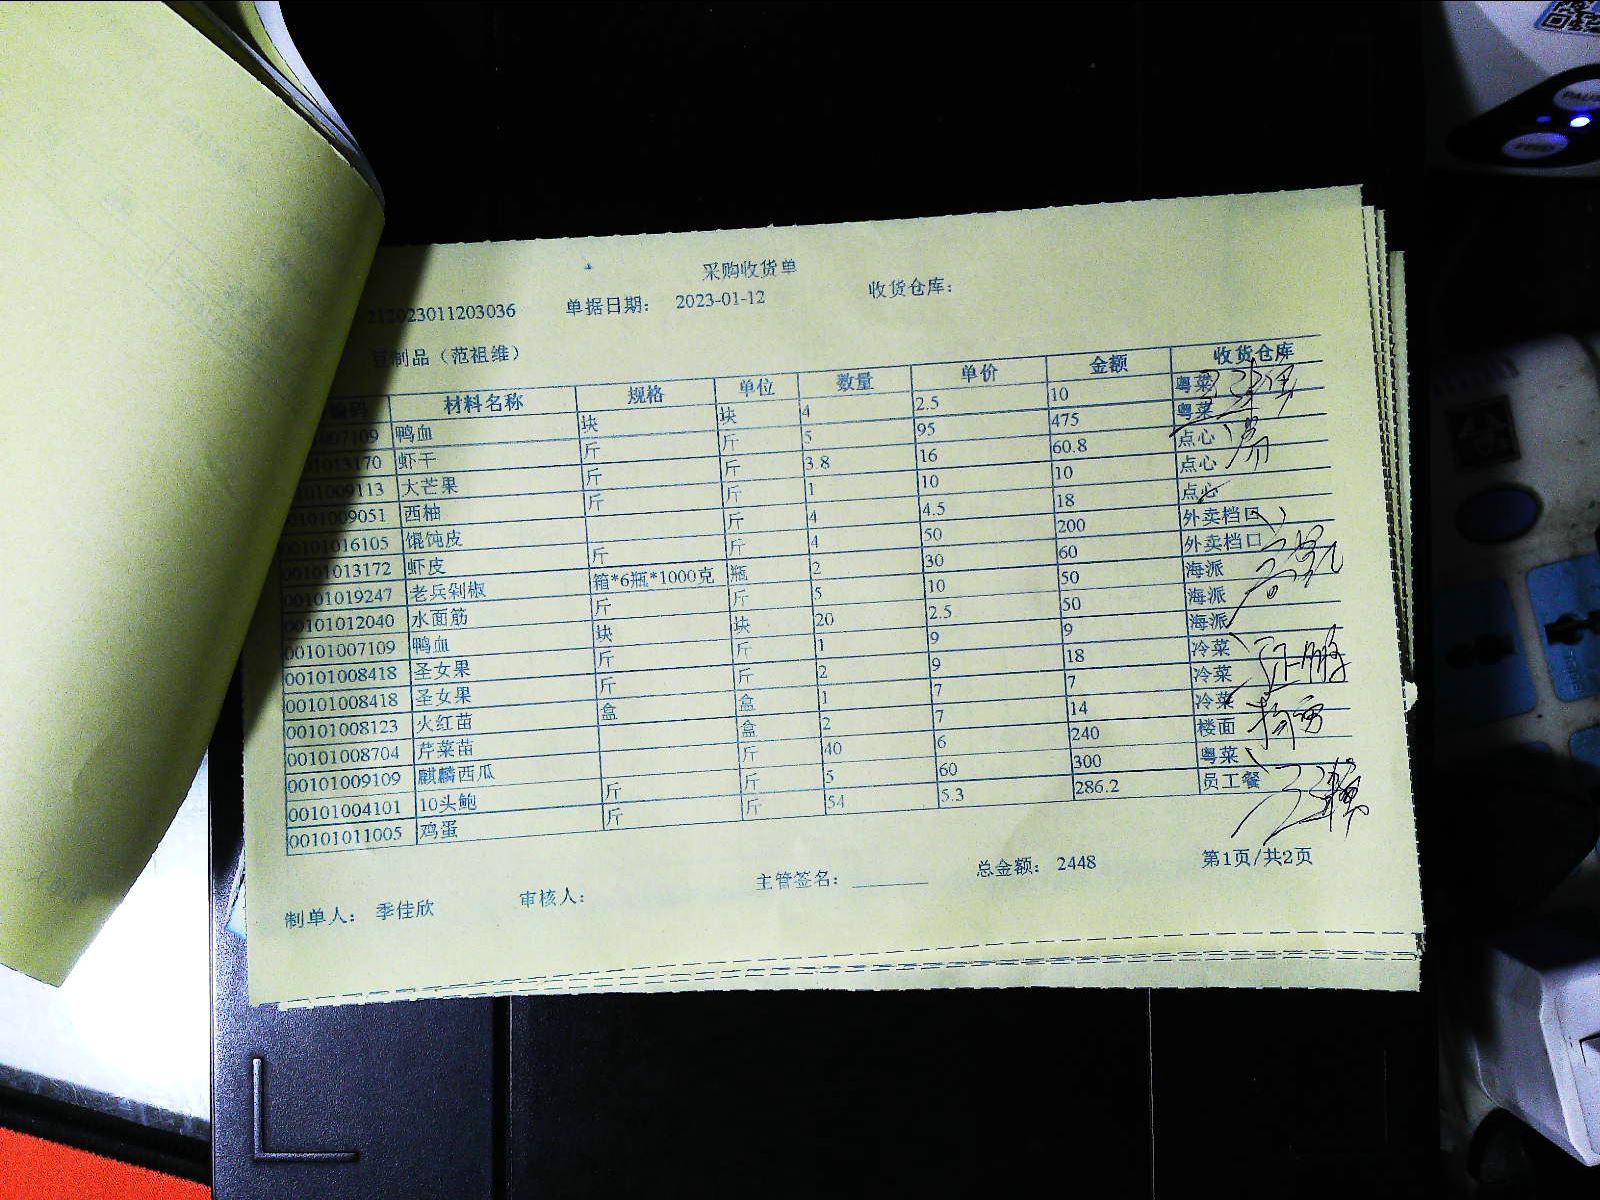 采购收货单
212023011203036 单据日期： 2023-01-12 收货仓库：
豆制品（范祖维）
编码 材料名称 规格 单位 数量 单价 金额 收货仓库
007109 鸭血 块 块 4 2.5 10 粤菜
01013170 虾干 斤 斤 5 95 475 粤菜
0101009113 大芒果 斤 斤 3.8 16 60.8 点心
00101009051 西柚 斤 斤 1 10 10 点心
00101016105 馄饨皮 斤 4 4.5 18 点心
00101013172 虾皮 斤 斤 4 50 200 外卖档口
00101019247 老兵剁椒 箱*6瓶*1000克 瓶 2 30 60 外卖档口
00101012040 水面筋 斤 斤 5 10 50 海派
00101007109 鸭血 块 块 20 2.5 50 海派
00101008418 圣女果 斤 斤 1 9 9 海派
00101008418 圣女果 斤 斤 2 9 18 冷菜
00101008123 火红苗 盒 盒 1 7 7 冷菜
00101008704 芹菜苗 盒 2 7 14 冷菜
00101009109 麒麟西瓜 斤 40 6 240 楼面
00101004101 10头鲍 斤 斤 5 60 300 粤菜
00101011005 鸡蛋 斤 斤 54 5.3 286.2 员工餐
制单人： 季佳欣 审核人： 主管签名： 总金额： 2448 第1页/共2页